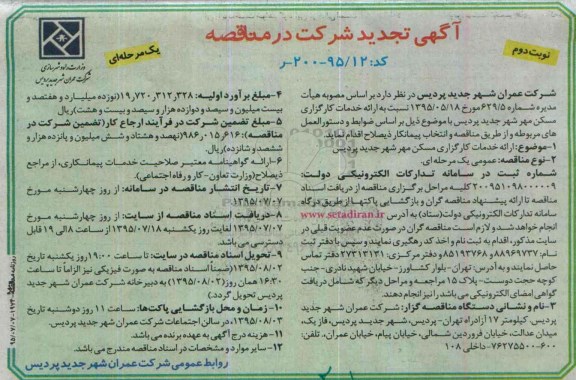 آگهی تجدید شرکت در مناقصه
نوبت دوم
یک مرحله‌ای
کد: ۹۵/۱۲-۲۰۰-ر
وزارت راه و شهرسازی
شرکت عمران شهر جدید پردیس
شرکت عمران شهر جدید پردیس در نظر دارد بر اساس مصوبه هیأت
مدیره شماره ۶۲۹/۵ مورخ ۱۳۹۵/۰۵/۱۸ نسبت به ارائه خدمات کارگزاری
مسکن مهر شهر جدید پردیس با موضوع ذیل بر اساس ضوابط و دستورالعمل
های مربوطه و از طریق مناقصه و انتخاب پیمانکار ذیصلاح اقدام نماید.
۱-موضوع: ارائه خدمات کارگزاری مسکن مهر شهر جدید پردیس
۲- نوع مناقصه: عمومی یک مرحله ای.
شماره ثبت در سامانه تدارکات الکترونیکی دولت:
۲۰۰۹۵۱۰۹۸۰۰۰۰۰۹ کلیه مراحل برگزاری مناقصه از دریافت اسناد
مناقصه تا ارائه پیشنهاد مناقصه گران و بازگشایی پاکتها از طریق درگاه
سامانه تدارکات الکترونیکی دولت (ستاد) به آدرس www.setadiran.ir
انجام خواهد شد و لازم است مناقصه گران در صورت عدم عضویت قبلی در
سایت مذکور، اقدام به ثبت نام و اخذ کد رهگیری نمایند و سپس با دفتر ثبت
نام: ۸۸۹۶۹۷۳۷ و ۸۵۱۹۳۷۶۸ و دفتر مرکزی: ۲۷۳۱۳۱۳۱ تماس
حاصل نمایند و به آدرس: تهران- بلوار کشاورز- خیابان شهید نادری- جنب
کوچه حجت دوست- پلاک ۱۵ مراجعه و مراحل دیگر که شامل دریافت
گواهی امضای الکترونیکی می باشد را نیز انجام دهند.
۳-نام و نشانی دستگاه مناقصه گزار: شرکت عمران شهر جدید
پردیس کیلومتر ۱۷ آزادراه تهران- پردیس، شهر جدید پردیس، فاز یک،
میدان عدالت، خیابان فروردین شمالی، خیابان پیام، خیابان عمران.
۷۶۲۷۵۵۰۰-۶۰۰ داخلی ۱۰۸
۴-مبلغ برآورد اولیه: ۱۹,۷۲۰,۳۱۲,۳۲۸ (نوزده میلیارد و هفتصد و
بیست میلیون و سیصد و دوازده هزار و سیصد و بیست و هشت) ریال
۵-مبلغ تضمین شرکت در فرآیند ارجاع کار (تضمین شرکت در
مناقصه): ۹۸۶,۰۱۵,۶۱۶ (نهصد و هشتاد و شش میلیون و پانزده هزار و
ششصد و شانزده) ریال.
۶-ارائه گواهینامه معتبر صلاحیت خدمات پیمانکاری، از مراجع
ذیصلاح (وزارت تعاون - کار و رفاه اجتماعی).
۷-تاریخ انتشار مناقصه در سامانه: از روز چهارشنبه مورخ
۱۳۹۵/۰۷/۰۷.
۸-دریافت اسناد مناقصه از سایت: از روز چهارشنبه مورخ
۱۳۹۵/۰۷/۰۷ لغایت روز یکشنبه ۱۳۹۵/۰۷/۱۸ از ساعت ۸ الی ۱۹ قابل
دسترسی می باشد.
۹-تحویل اسناد مناقصه در سایت: تا ساعت ۱۹:۰۰ روز یکشنبه تاریخ
۱۳۹۵/۰۸/۰۲ (ضمناً اسناد مناقصه به صورت فیزیکی نیز الزاماً تا ساعت
۱۶:۳۰ همان روز (۱۳۹۵/۰۸/۰۲) به دبیرخانه شرکت عمران شهر جدید
پردیس تحویل گردد.)
۱۰-زمان و محل بازگشایی پاکت‌ها: ساعت ۱۱ روز دوشنبه تاریخ
۱۳۹۵/۰۸/۰۳، در سالن اجتماعات شرکت عمران شهر جدید پردیس.
۱۱-هزینه درج آگهی به عهده برنده می باشد.
۱۲-سایر موارد و مشخصات در اسناد مناقصه مندرج می باشد.
روابط عمومی شرکت عمران شهر جدید پردیس